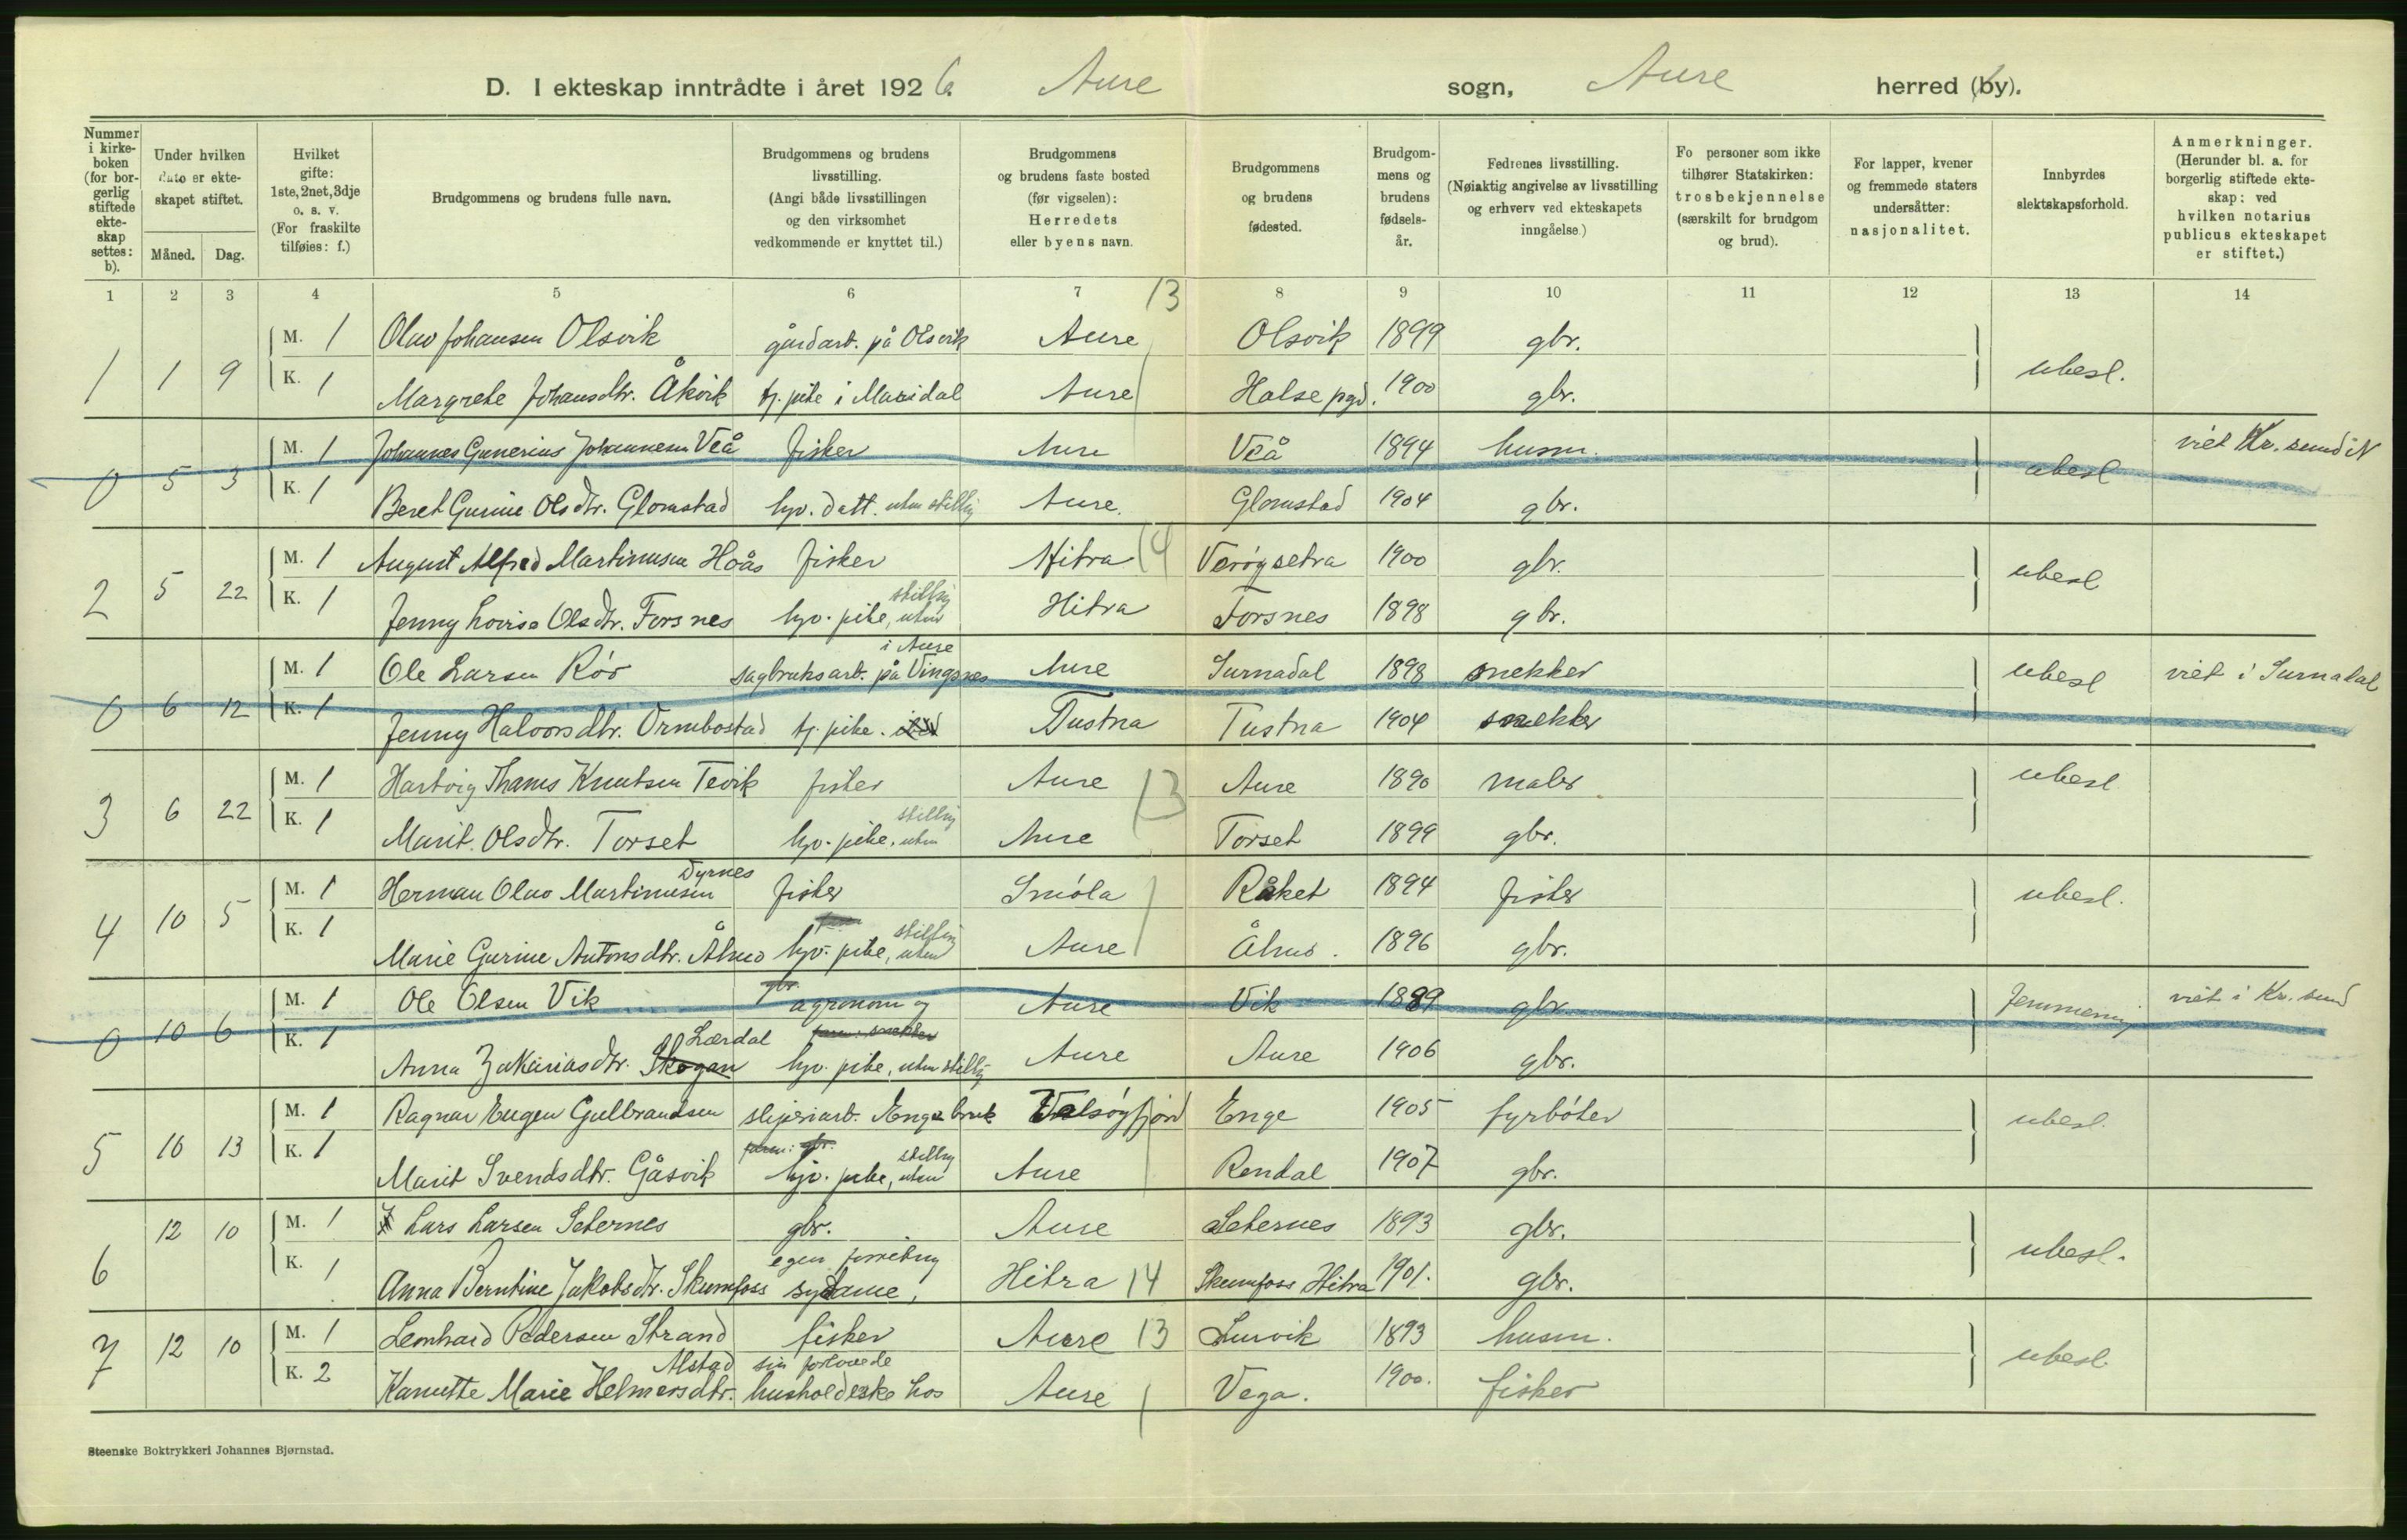 D. I ekteskap inntrådte i året 1926. Aure sogn, Aure herred (by).
Nummer i kirkeboken (for borgerlig stiftede ekteskap settes: b).
Under hvilken dato er ekteskapet stiftet.
Måned. Dag.
Hvilket gifte: 1ste, 2net, 3dje o. s. v. (For fraskilte tilføies: f.)
Brudgommens og brudens fulle navn.
Brudgommens og brudens livsstilling. (Angi både livsstillingen og den virksomhet vedkommende er knyttet til.)
Brudgommens og brudens faste bosted (før vigselen): Herredets eller byens navn.
Brudgommens og brudens fødested.
Brudgommens og brudens fødselsår.
Fedrenes livsstilling. (Nøiaktig angivelse av livsstilling og erhverv ved ekteskapets inngåelse.)
Fo personer som ikke tilhører Statskirken: trosbekjennelse (særskilt for brudgom og brud).
For lapper, kvener og fremmede staters undersåtter: nasjonalitet.
Innbyrdes slektskapsforhold.
Anmerkninger. (Herunder bl. a. for borgerlig stiftede ekteskap: ved hvilken notarius publicus ekteskapet er stiftet.)
1 2 3 4 5 6 7 13 8 9 10 11 12 13 14
1 1 9 M. 1 Olav Johansen Olsvik gårdarb. på Olsvik Aure Olsvik 1899 gbr. ubesl.
K. 1 Margrete Johansdtr. Åkvik tj. pike i Mardal Aure Halse pgd. 1900 gbr.
0 5 3 M. 1 Johannes Gunerius Johannesen Veå fisker Aure Veå 1894 husm. ubesl viet Kr. sund N
K. 1 Beret Gurine Olsdtr. Glomstad hjv. datt. uten stilling Aure. Glomstad 1904 gbr.
2 5 22 M. 1 August Alfred Martinusen Hoås fisker Hitra 14 Verøysetra 1900 gbr. ubesl
K. 1 Jenny Lovise Olsdtr. Forsnes hjv. pike, uten stilling Hitra Forsnes 1898 gbr.
0 6 12 M. 1 Ole Larsen Rör sagbruksarb. på Vingsnes i Aure Aure Surnadal 1898 snekker ubesl viet i Surnadal
K. 1 Jenny Halvorsdtr. Ormbostad tj. pike. Tustna Tustna 1904 snekker
3 6 22 M. 1 Hartvig Thams Knutsen Tevik fisker Aure 13 Aure 1890 maler ubesl
K. 1 Marit Olsdtr. Torset hjv. pike, uten stilling Aure Torset 1899 gbr.
4 10 5 M. 1 Herman Olav Martinusen Dyrnes fisker Smöla Råket 1894 fisker ubesl.
K. 1 Marie Gurine Antonsdtr. Ålmo hjv. pike, uten stilling Aure Ålmo. 1896 gbr.
0 10 6 M. 1 Ole Olsen Vik gbr. agronom og Aure Vik 1889 gbr. viet i Kr. sund
K. 1 Anna Zakariasdtr. Skogan Lærdal hjv. pike, uten stilling Aure Aure 1906 gbr.
5 10 13 M. 1 Ragnar Eugen Gulbrandsen sliperiarb. Enge bruk Valsøyfjord Enge 1905 fyrböter ubesl.
K. 1 Marit Svendsdtr. Gåsvik hjv. pike, uten stilling Aure Rendal 1907 gbr.
6 12 10 M. 1 Lars Larsen Seternes gbr. Aure Seternes 1893 gbr. ubesl.
K. 1 Anna Berntine Jakobsdtr. Skumfoss sydame, egen forretning Hitra 14 Skumfoss Hitra 1901. gbr.
7 12 10 M. 1 Leonhard Pedersen Strand fisker Aure 13 Lurvik 1893 husm. ubesl.
K. 2 Kanutte Marie Helmersdtr. Alstad husholderske hos sin forlovede Aure Vega. 1900. fisker
Steenske Boktrykkeri Johannes Bjørnstad.